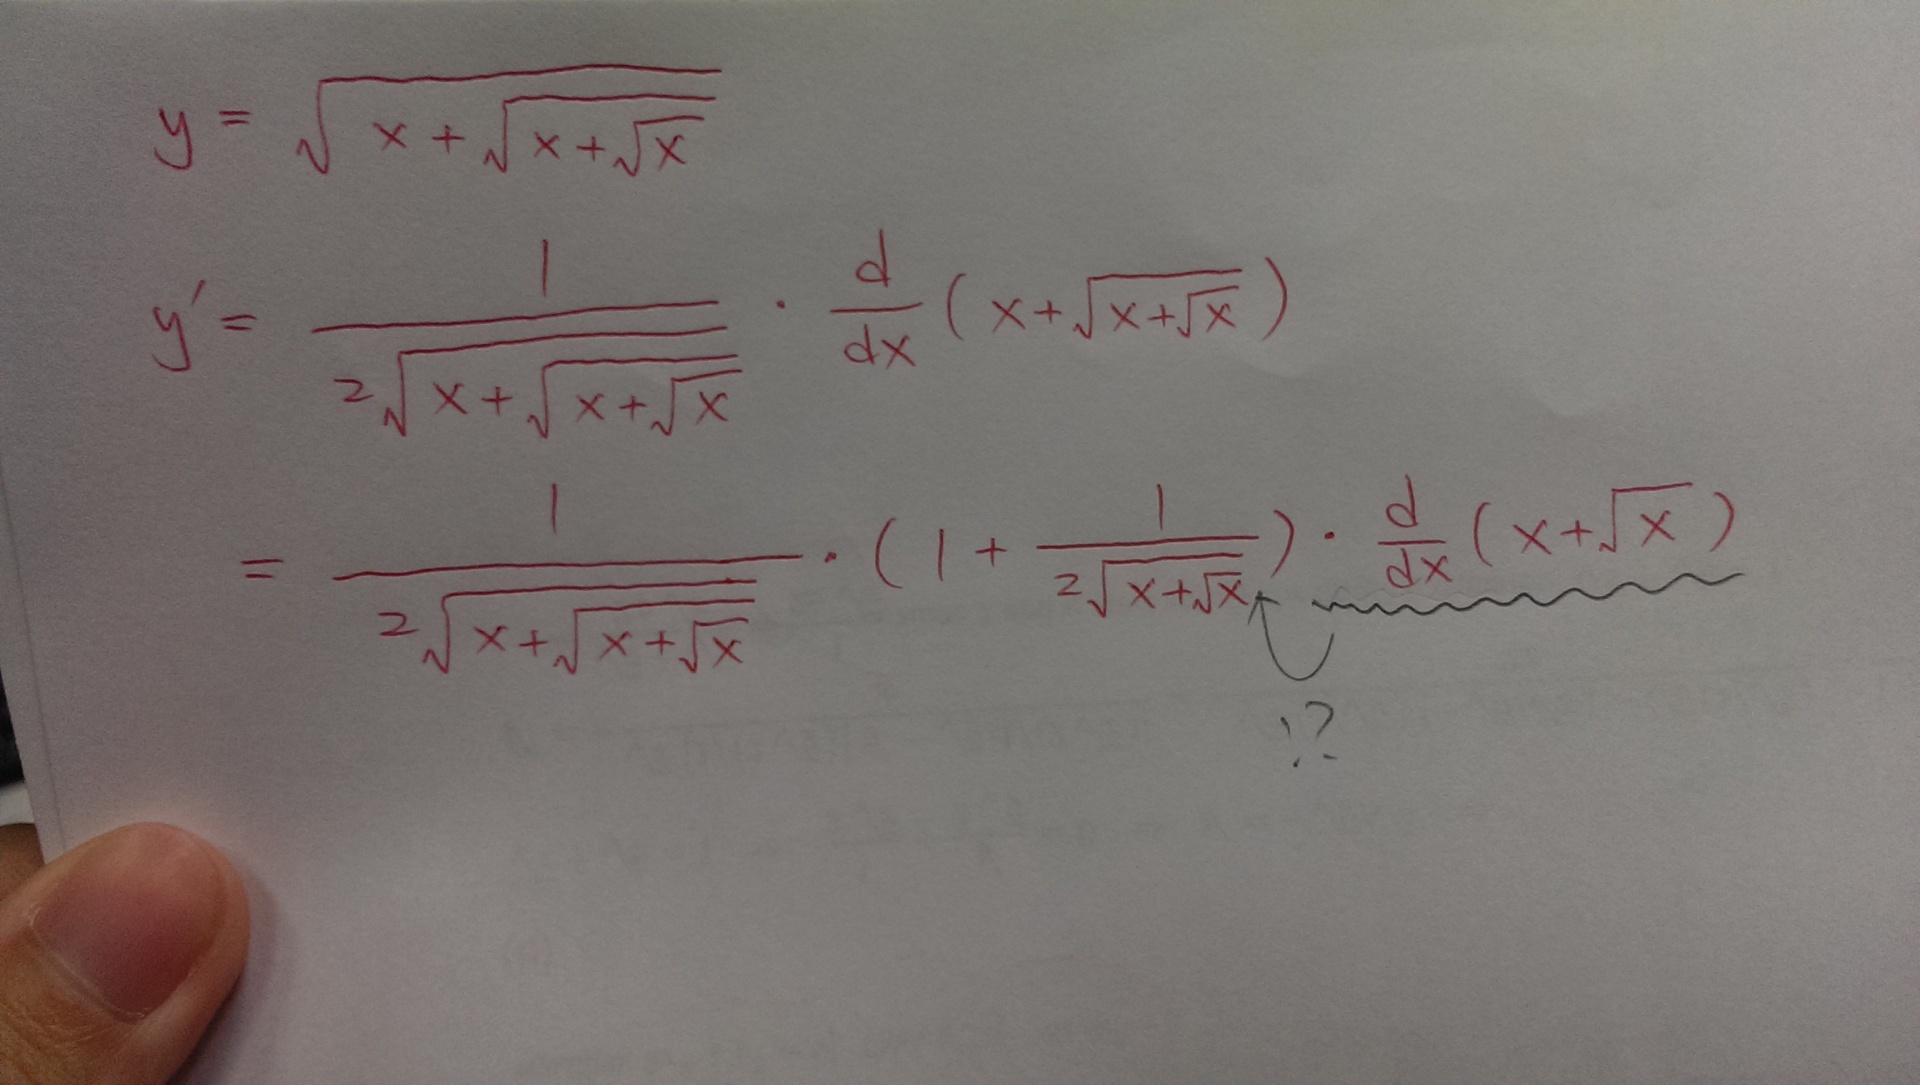 y = √(x + √(x + √x))
y′ = 1 / (2√(x + √(x + √x))) · d/dx (x + √(x + √x))
= 1 / (2√(x + √(x + √x))) · (1 + 1 / (2√(x + √x))) · d/dx (x + √x)
!?